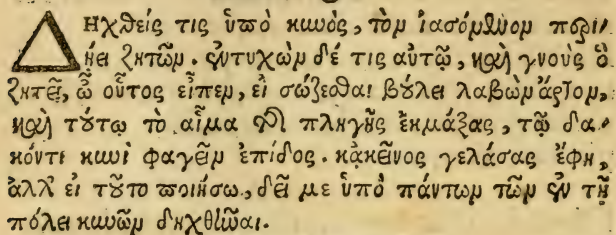 Δηχθείς τις ὑπὸ κυνὸς, τὸν ἰασόμενον περιῄ/
ει ζητῶν. ἐντυχὼν δέ τις αὐτῷ, καὶ γνοὺς ὃ
ζητεῖ, ὦ οὗτος εἶπεν, εἰ σώζεσθαι βούλει λαβὼν ἄρτον,
καὶ τούτῳ τὸ αἷμα τῆς πληγῆς ἐκμάξας, τῷ δα/
κόντι κυνὶ φαγεῖν ἐπίδος. κᾀκεῖνος γελάσας ἔφη,
ἀλλ' εἰ τοῦτο ποιήσω, δεῖ με ὑπὸ πάντων τῶν ἐν τῇ
πόλει κυνῶν δηχθῆναι.